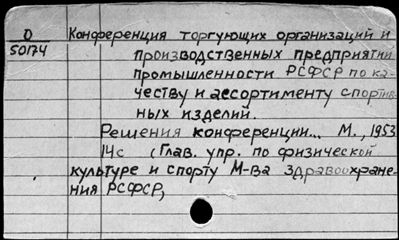 О Конференция торгующих организаций и
50174 производственных предприятий
промышленности РСФСР по ка-
честву и ассортименту спортив-
ных изделий.
Решения конференции... М., 1953
14с (Глав. упр. по физической
культуре и спорту М-ва здравоохране-
ния РСФСР,